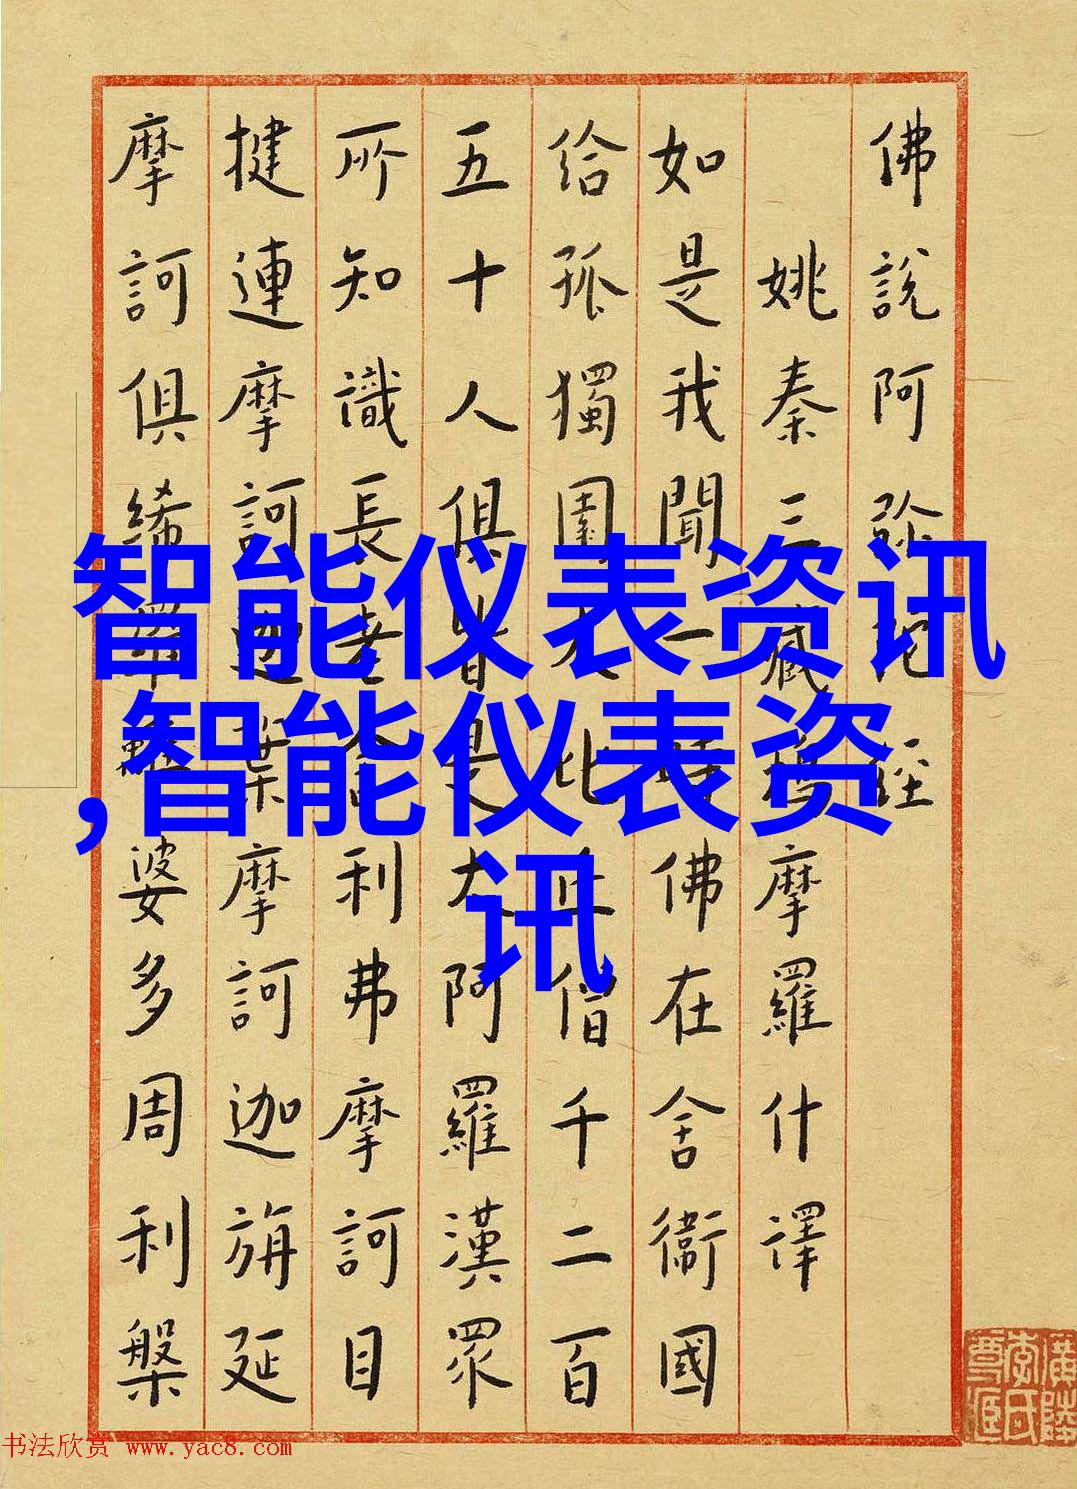 佛說阿弥陀經
姚秦三藏鳩摩羅什譯
如是我聞一時佛在舍衛國
給孤獨園大比丘僧千二百
五十人俱皆是大阿羅漢眾
所知識長老舍利弗摩訶目
揵連摩訶迦葉摩訶迦旃延
摩訶俱絺羅離婆多周利槃
智能仪表资讯
,智能仪表资
讯
书法欣赏 www.yac8.com